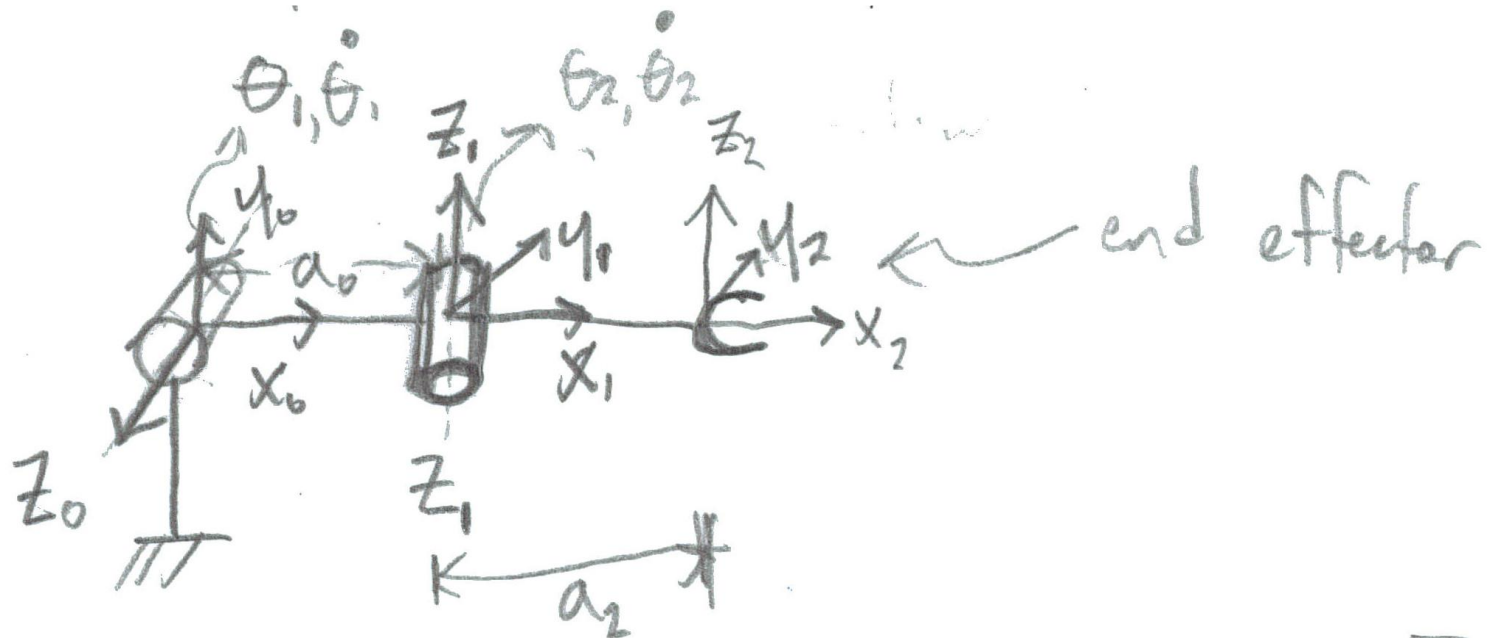 θ₁, θ̇₁ θ₂, θ̇₂
Z₁ Z₂
y₀ y₁ y₂ end effector
a₀
x₀ x₁ x₂
Z₀ Z₁
a₂